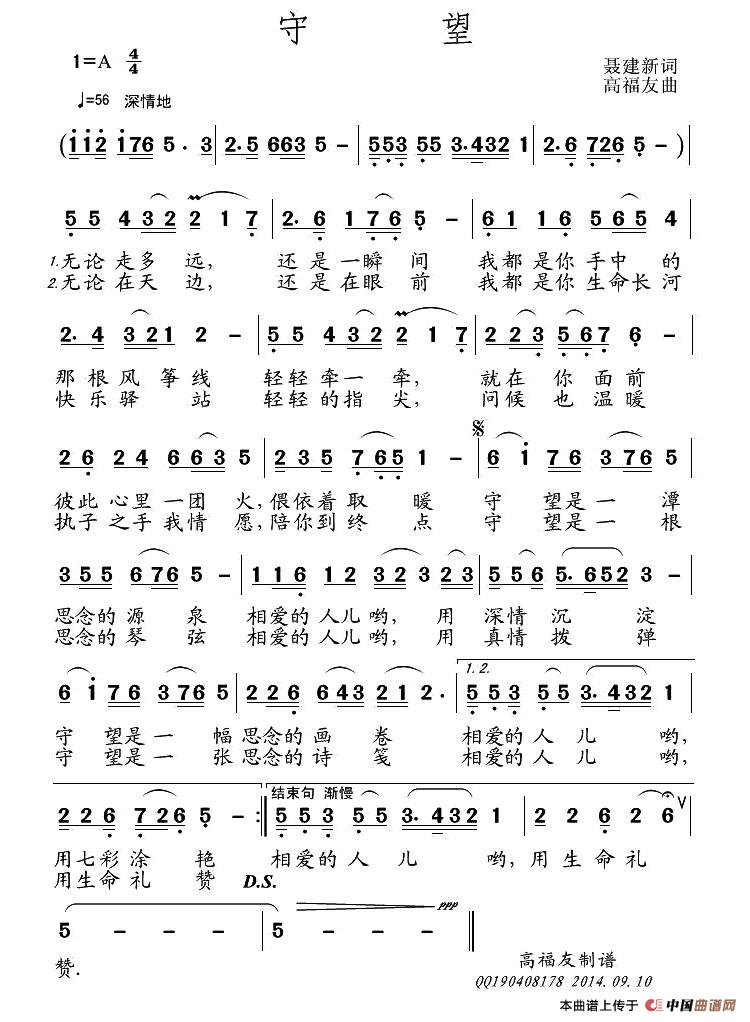 守 望
1=A 4/4
♩=56 深情地
聂建新词
高福友曲
(1 1 2 1 7 6 5. 3 | 2. 5 6 6 3 5 - | 5 5 3 5 5 3. 4 3 2 1 | 2. 6 7 2 6 5 - )
5 5 4 3 2 2 1 7 | 2. 6 1 7 6 5 - | 6 1 1 6 5 6 5 4
1.无论走多远, 还是一瞬间 我都是你手中的
2.无论在天边, 还是在眼前 我都是你生命长河
2. 4 3 2 1 2 - | 5 5 4 3 2 2 1 7 | 2 2 3 5 6 7 6 -
那根风筝线 轻轻牵一牵, 就在你面前
快乐驿站 轻轻的指尖, 问候也温暖
2 6 2 4 6 6 3 5 | 2 3 5 7 6 5 1 - | 6 1 7 6 3 7 6 5
彼此心里一团火,偎依着取暖 守望是一潭
执子之手我情愿,陪你到终点 守望是一根
3 5 5 6 7 6 5 - | 1 1 6 1 2 3 2 3 2 3 | 5 5 6 5. 6 5 2 3 -
思念的源泉 相爱的人儿哟, 用深情沉淀
思念的琴弦 相爱的人儿哟, 用真情拨弹
1. 2.
6 1 7 6 3 7 6 5 | 2 2 6 6 4 3 2 1 2. | 5 5 3 5 5 3. 4 3 2 1
守望是一幅思念的画卷 相爱的人儿哟,
守望是一张思念的诗笺 相爱的人儿哟,
结束句 渐慢
2 2 6 7 2 6 5 - :| 5 5 3 5 5 3. 4 3 2 1 | 2 2 6 2 6 V
用七彩涂艳 相爱的人儿哟,用生命礼
用生命礼赞 D.S.
ppp
5 - - - | 5 - - - ‖
赞.
高福友制谱
QQ190408178 2014.09.10
本曲谱上传于 中国曲谱网